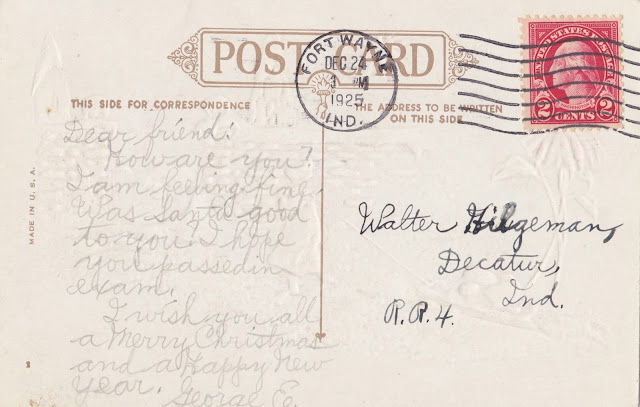 POST CARD
FORT WAYNE
DEC 24
3 PM
1925
IND.
UNITED STATES POSTAGE
2 CENTS 2
THIS SIDE FOR CORRESPONDENCE
THE ADDRESS TO BE WRITTEN
ON THIS SIDE
MADE IN U.S.A.
Dear friend:
How are you?
I am feeling fine.
Was Santa good
to you? I hope
you passed in
exam.
I wish you all
a Merry Christmas
and a Happy New
Year.
George E.
Walter Hilgeman,
Decatur,
Ind.
R.R.4.